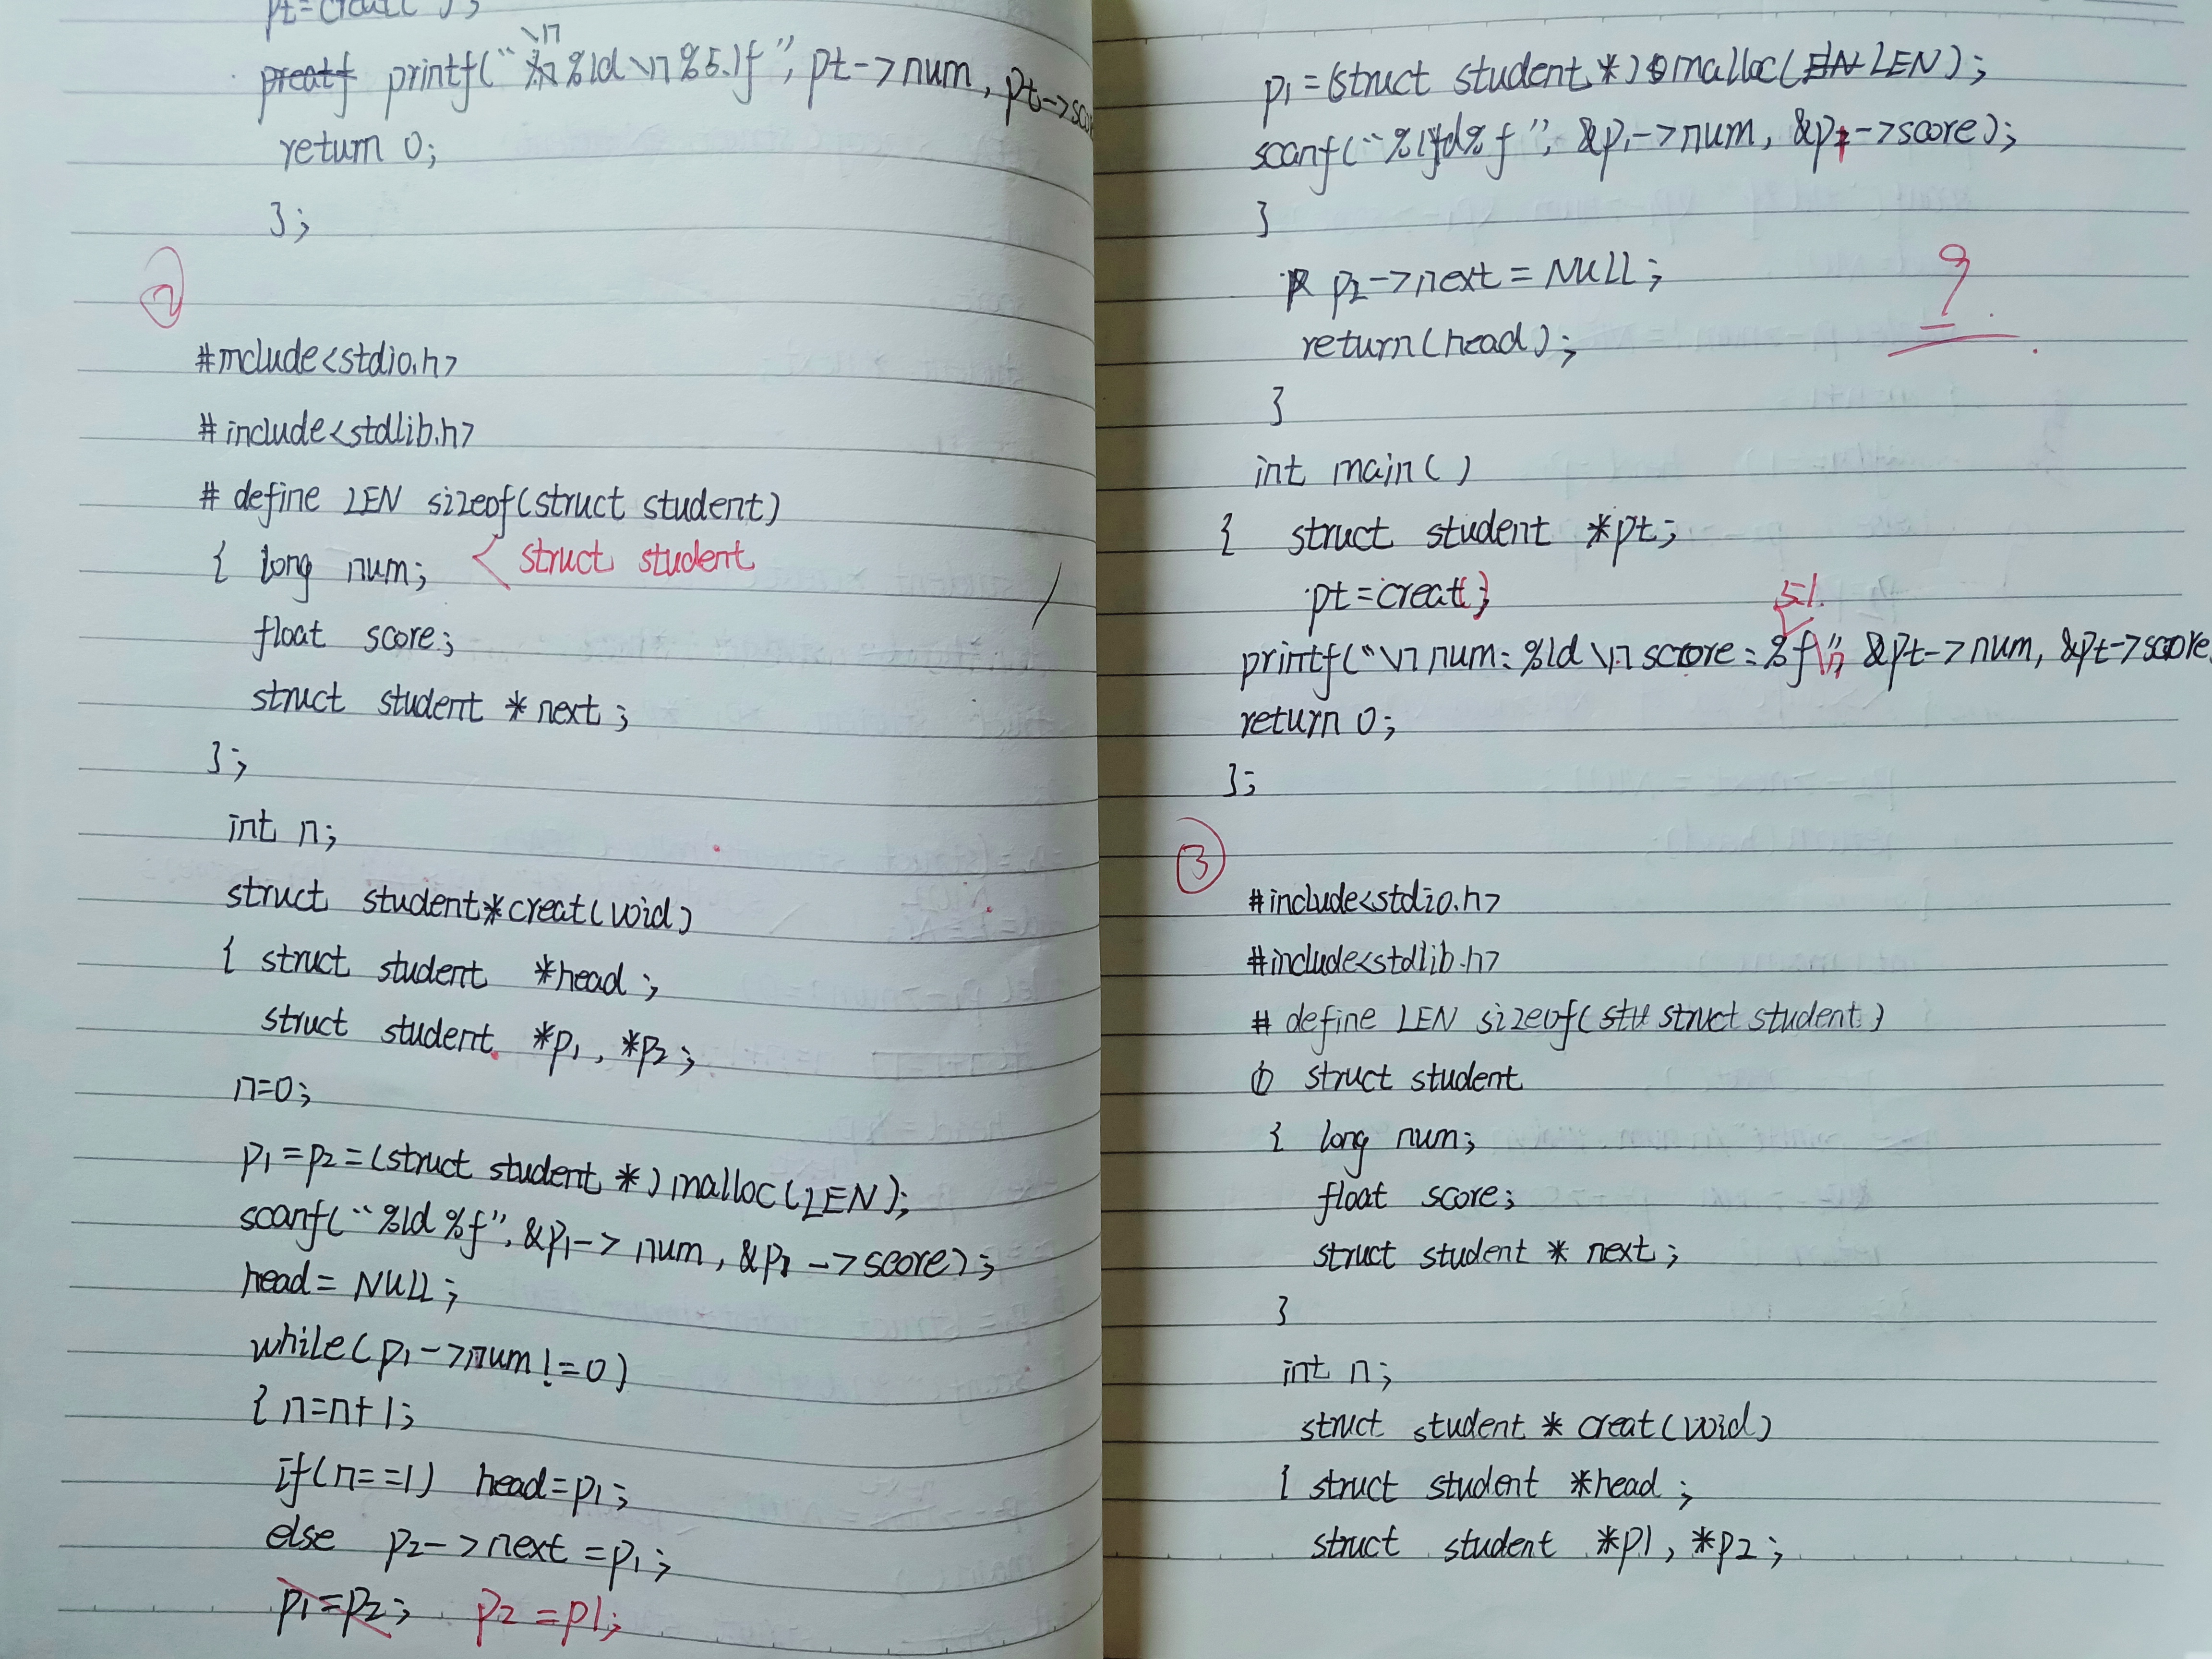 pt=creat( );
printf("\n %ld \n %5.1f", pt->num, pt->scor
return 0;
};
②
#include<stdio.h>
#include<stdlib.h>
# define LEN sizeof(struct student)
{ long num; < struct student
float score;
struct student * next;
};
int n;
struct student*creat(void)
{ struct student *head;
struct student *p1, *p2;
n=0;
p1=p2=(struct student *)malloc(LEN);
scanf("%ld %f", &p1->num, &p1->score);
head= NULL;
while(p1->num!=0)
{ n=n+1;
if(n==1) head=p1;
else p2->next=p1;
p1=p2; p2=p1;
p1=(struct student*)malloc(LEN);
scanf("%ld%f", &p1->num, &p1->score);
}
p2->next=NULL;
return(head);
}
9
int main( )
{ struct student *pt;
pt=creat();
5.1
printf("\n num: %ld \n score: %f\n", &pt->num, &pt->score
return 0;
};
③
#include<stdio.h>
#include<stdlib.h>
# define LEN sizeof(stu struct student)
struct student
{ long num;
float score;
struct student * next;
}
int n;
struct student * creat(void)
{ struct student *head;
struct student *p1, *p2;